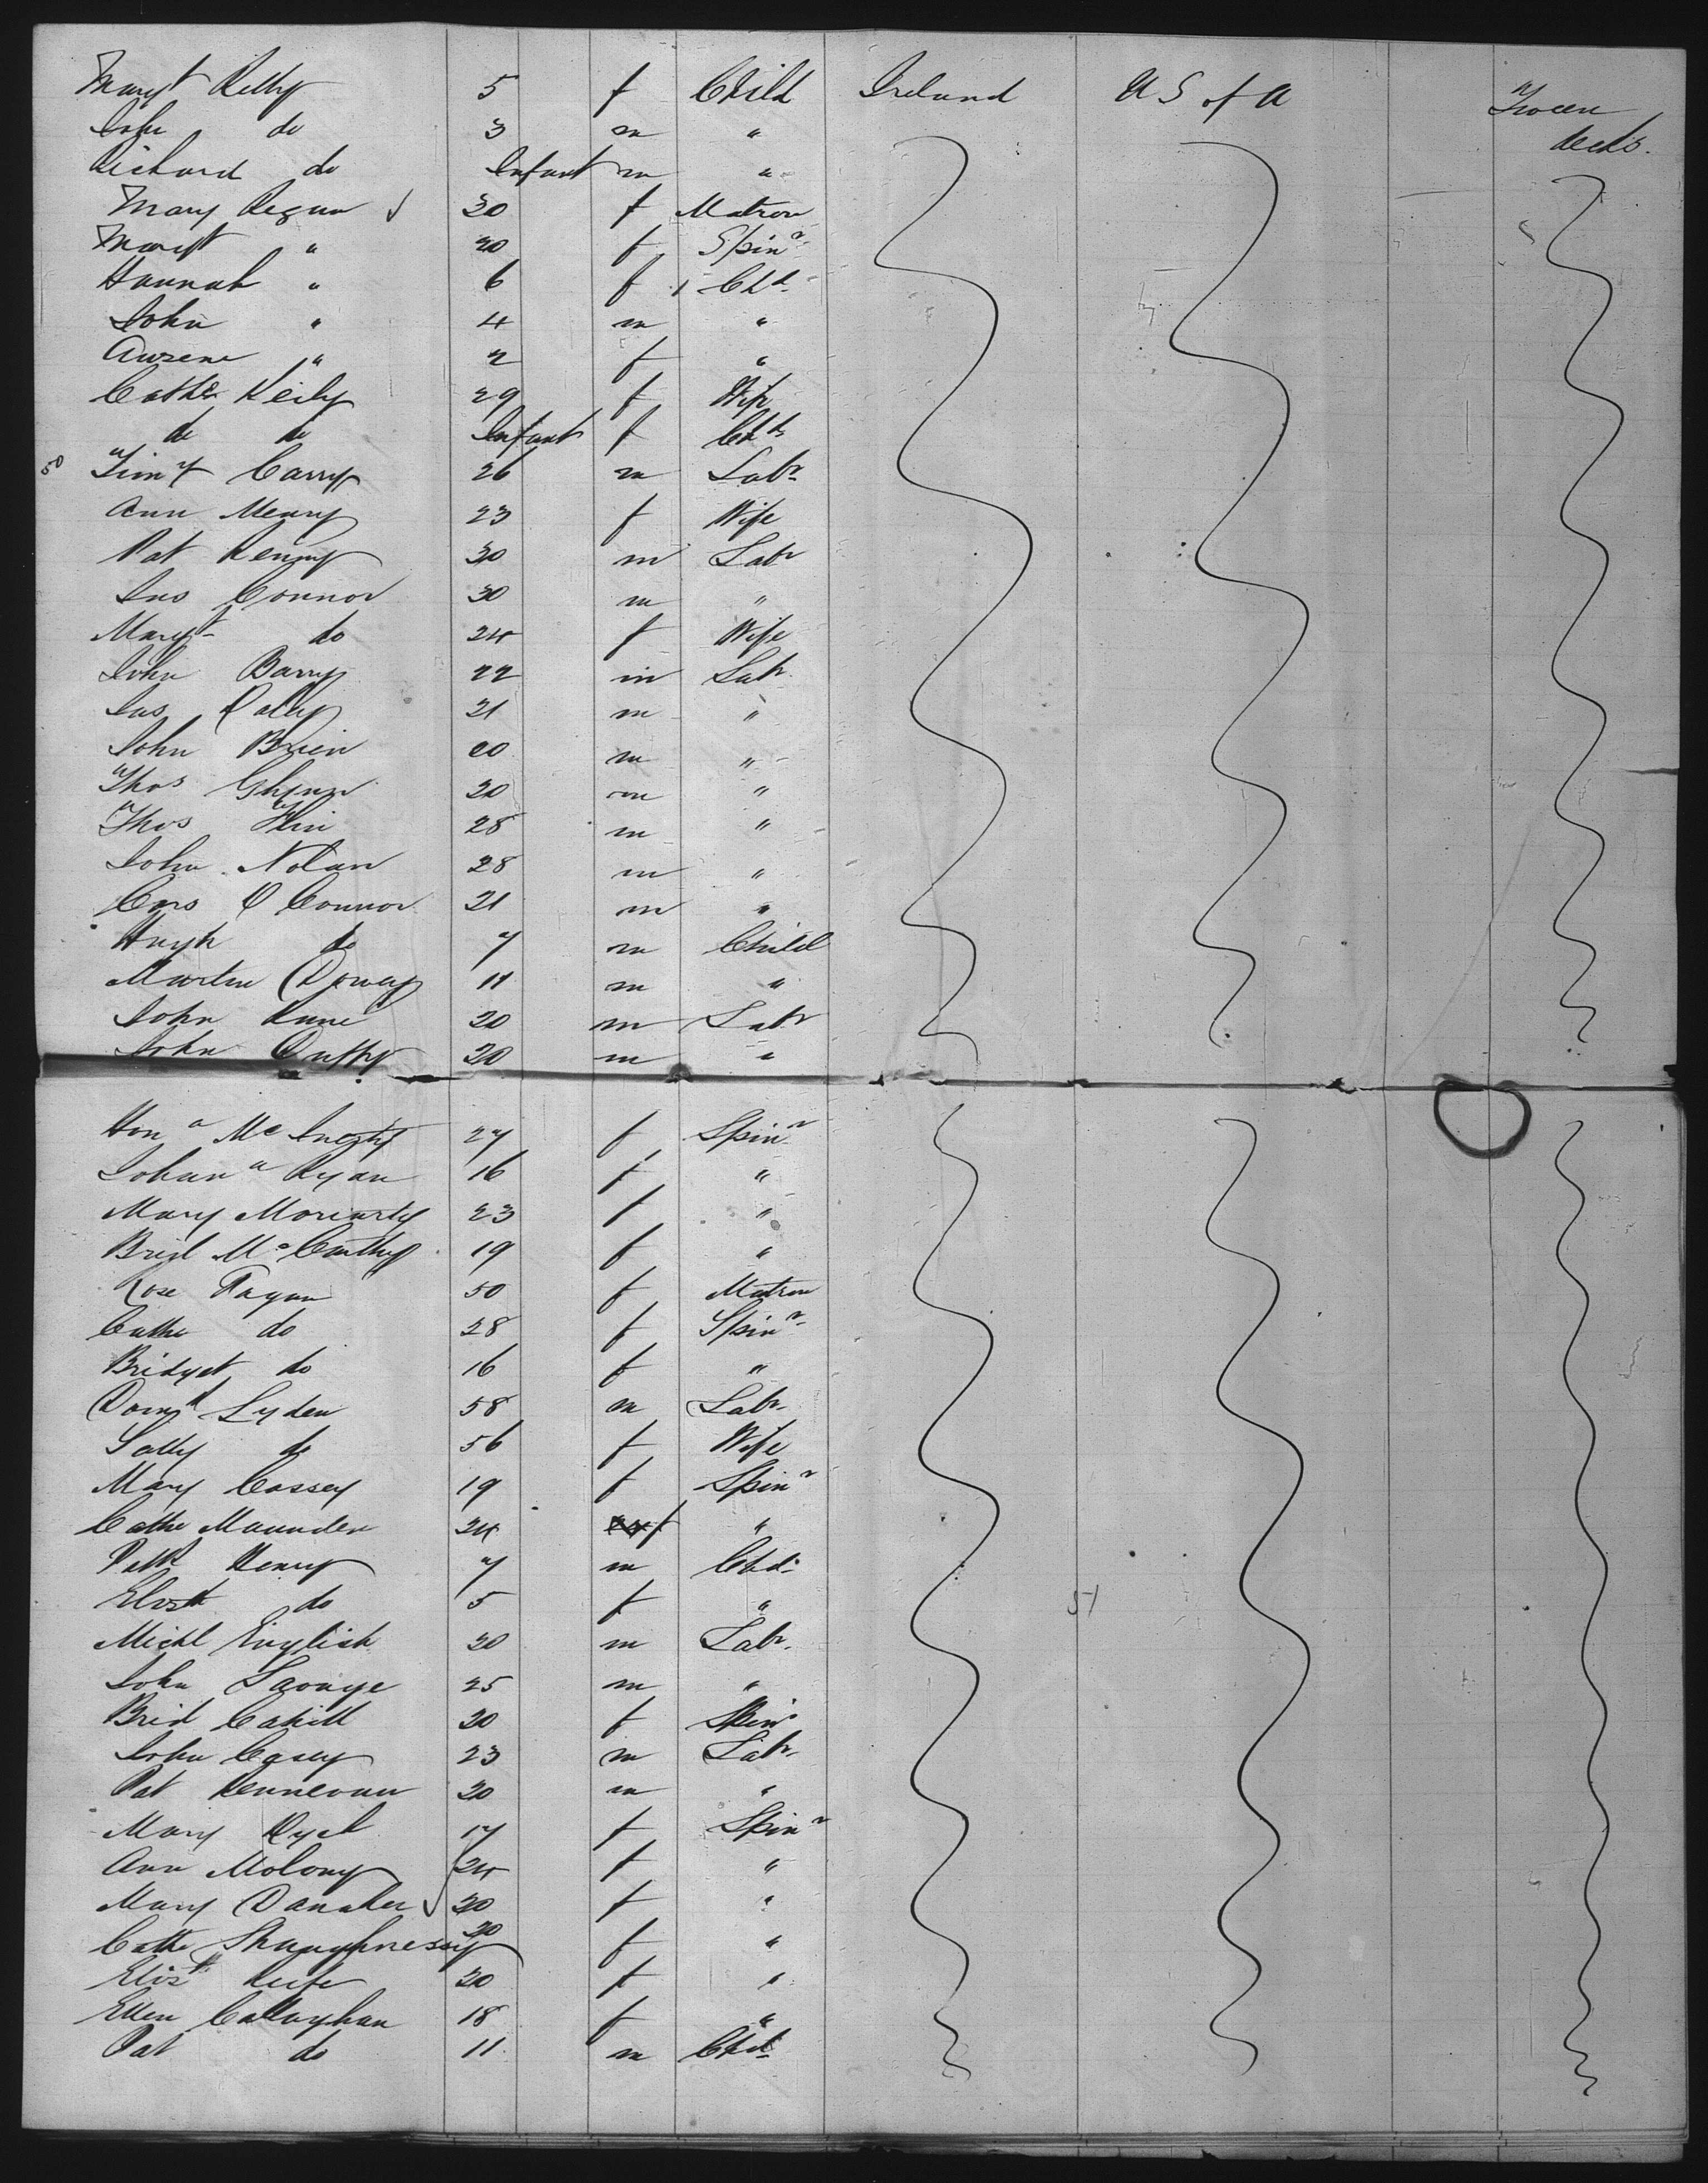 Margt Kelly 5 f Child Ireland U S of A Tween decks.
John do 3 m "
Richard do Infant m "
Mary Regan 30 f Matron
Margt " 20 f Spinr
Hannah " 6 f Chd
John " 4 m "
" 2 f "
Cathe Keily 29 f Wife
do do Infant f Chd
50 Timy Carry 26 m Labr
Ann Henry 23 f Wife
Pat Kenny 30 m Labr
Jno Connor 30 m "
Margt do 24 f Wife
John Barry 22 m Labr
Jas Daly 21 m "
John Brien 20 m "
Thos Glynn 20 m "
Thos Flin 28 m "
John Nolan 28 m "
O Connor 21 m "
Hugh do 7 m Child
Martin 11 m "
John Kane 20 m Labr
John Duffy 20 m "
Hona Mc 27 f Spinr
Johana Ryan 16 f "
Mary Moriarty 23 f "
Brid McCarthy 19 f "
Rose Fagan 50 f Matron
Cathe do 28 f Spinr
Bridget do 16 f "
Domk Lyden 58 m Labr
Sally do 56 f Wife
Mary Cassey 19 f Spinr
Cathe Maunder 24 f "
Patk Henry 7 m Chd
Elizth do 5 f "
51
Michl English 20 m Labr
John Savage 25 m "
Brid Cahill 20 f Spinr
John Casey 23 m Labr
Pat 20 m "
Mary 17 f Spinr
Ann Molony 24 f "
Mary Danaher 20 f "
Cathe Shaughnessy 20 f "
Elizth Keefe 20 f "
Ellen Callaghan 18 f "
Pat do 11 m Chd